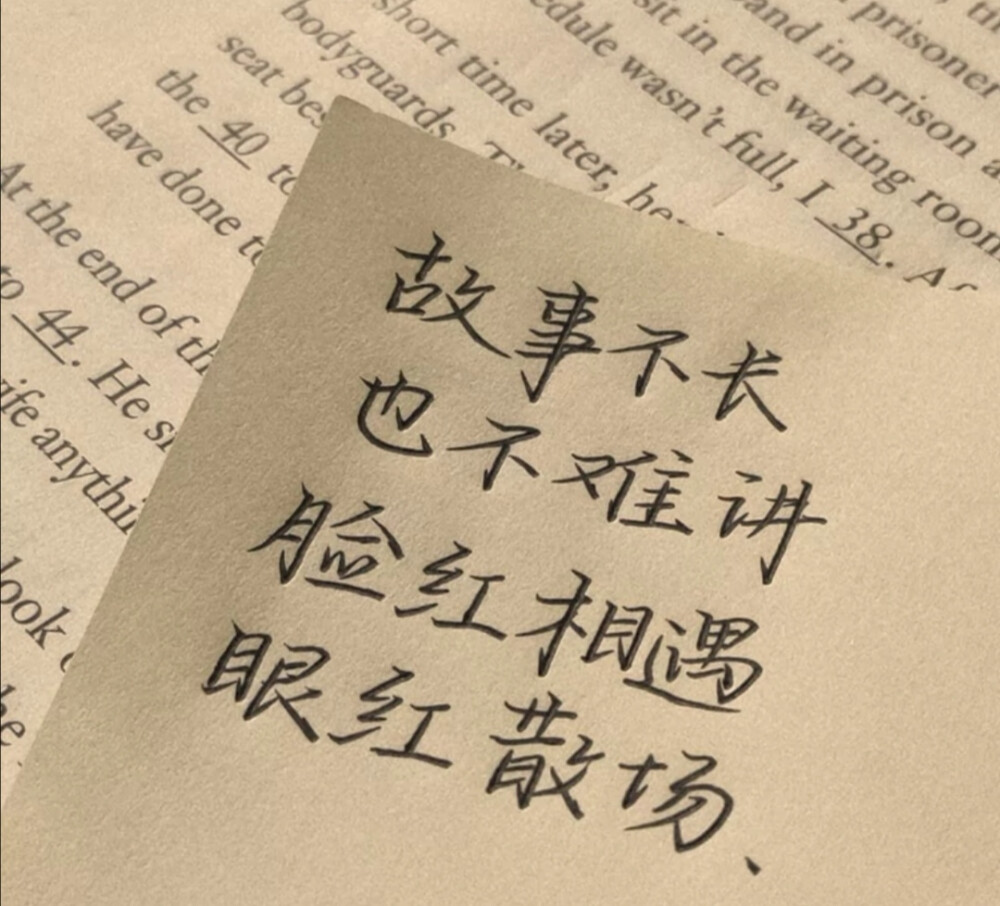 short time later, he
bodyguards. Th
seat bes
the 40 to
have done to
edule wasn't full, I 38. Af
sit in the waiting room
and in prison a
prisoner
At the end of th
to 44. He s
ife anythi
look
he
故事不长
也不难讲
脸红相遇
眼红散场、